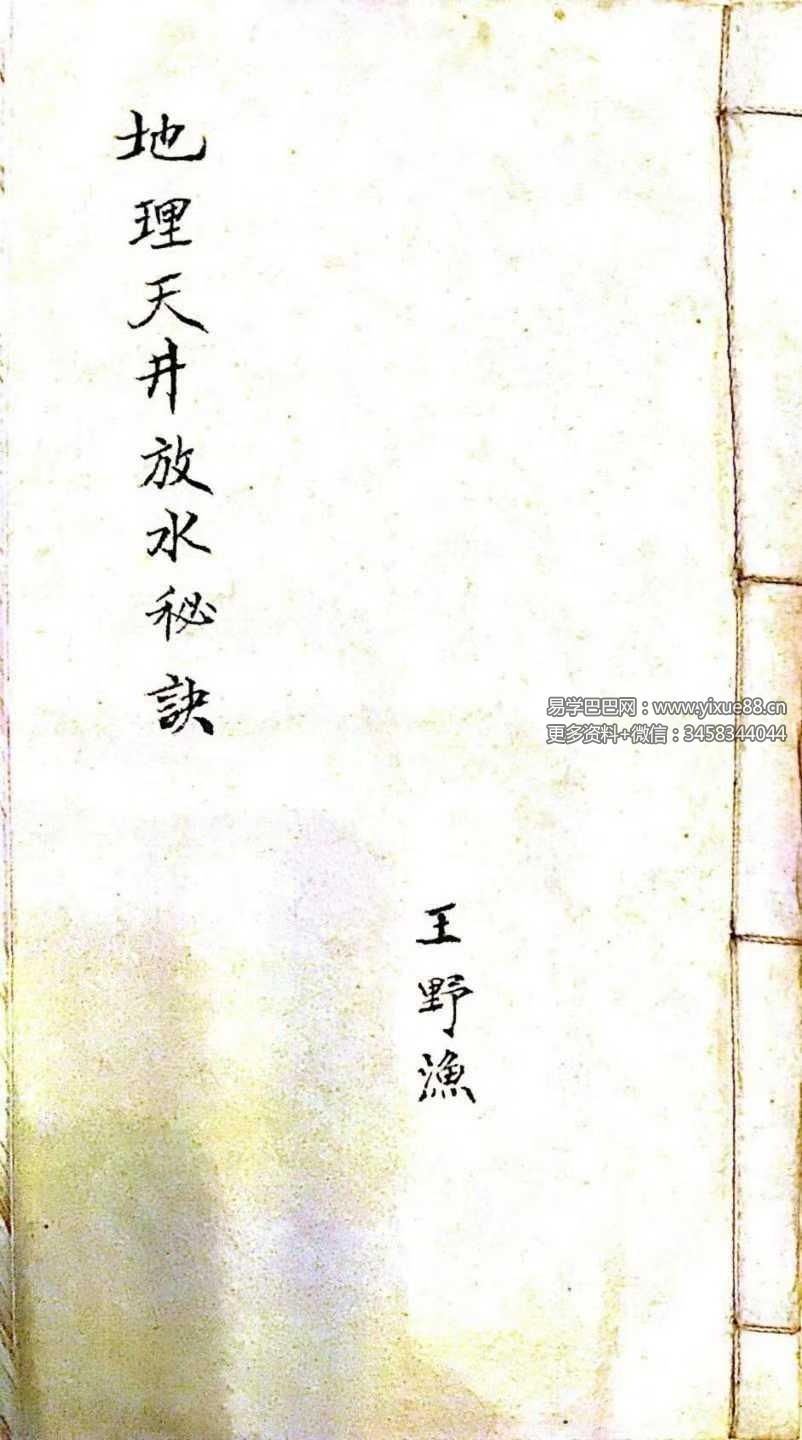 地理天井放水秘訣
王野漁
易学巴巴网：www.yixue88.cn
更多资料+微信：3458344044